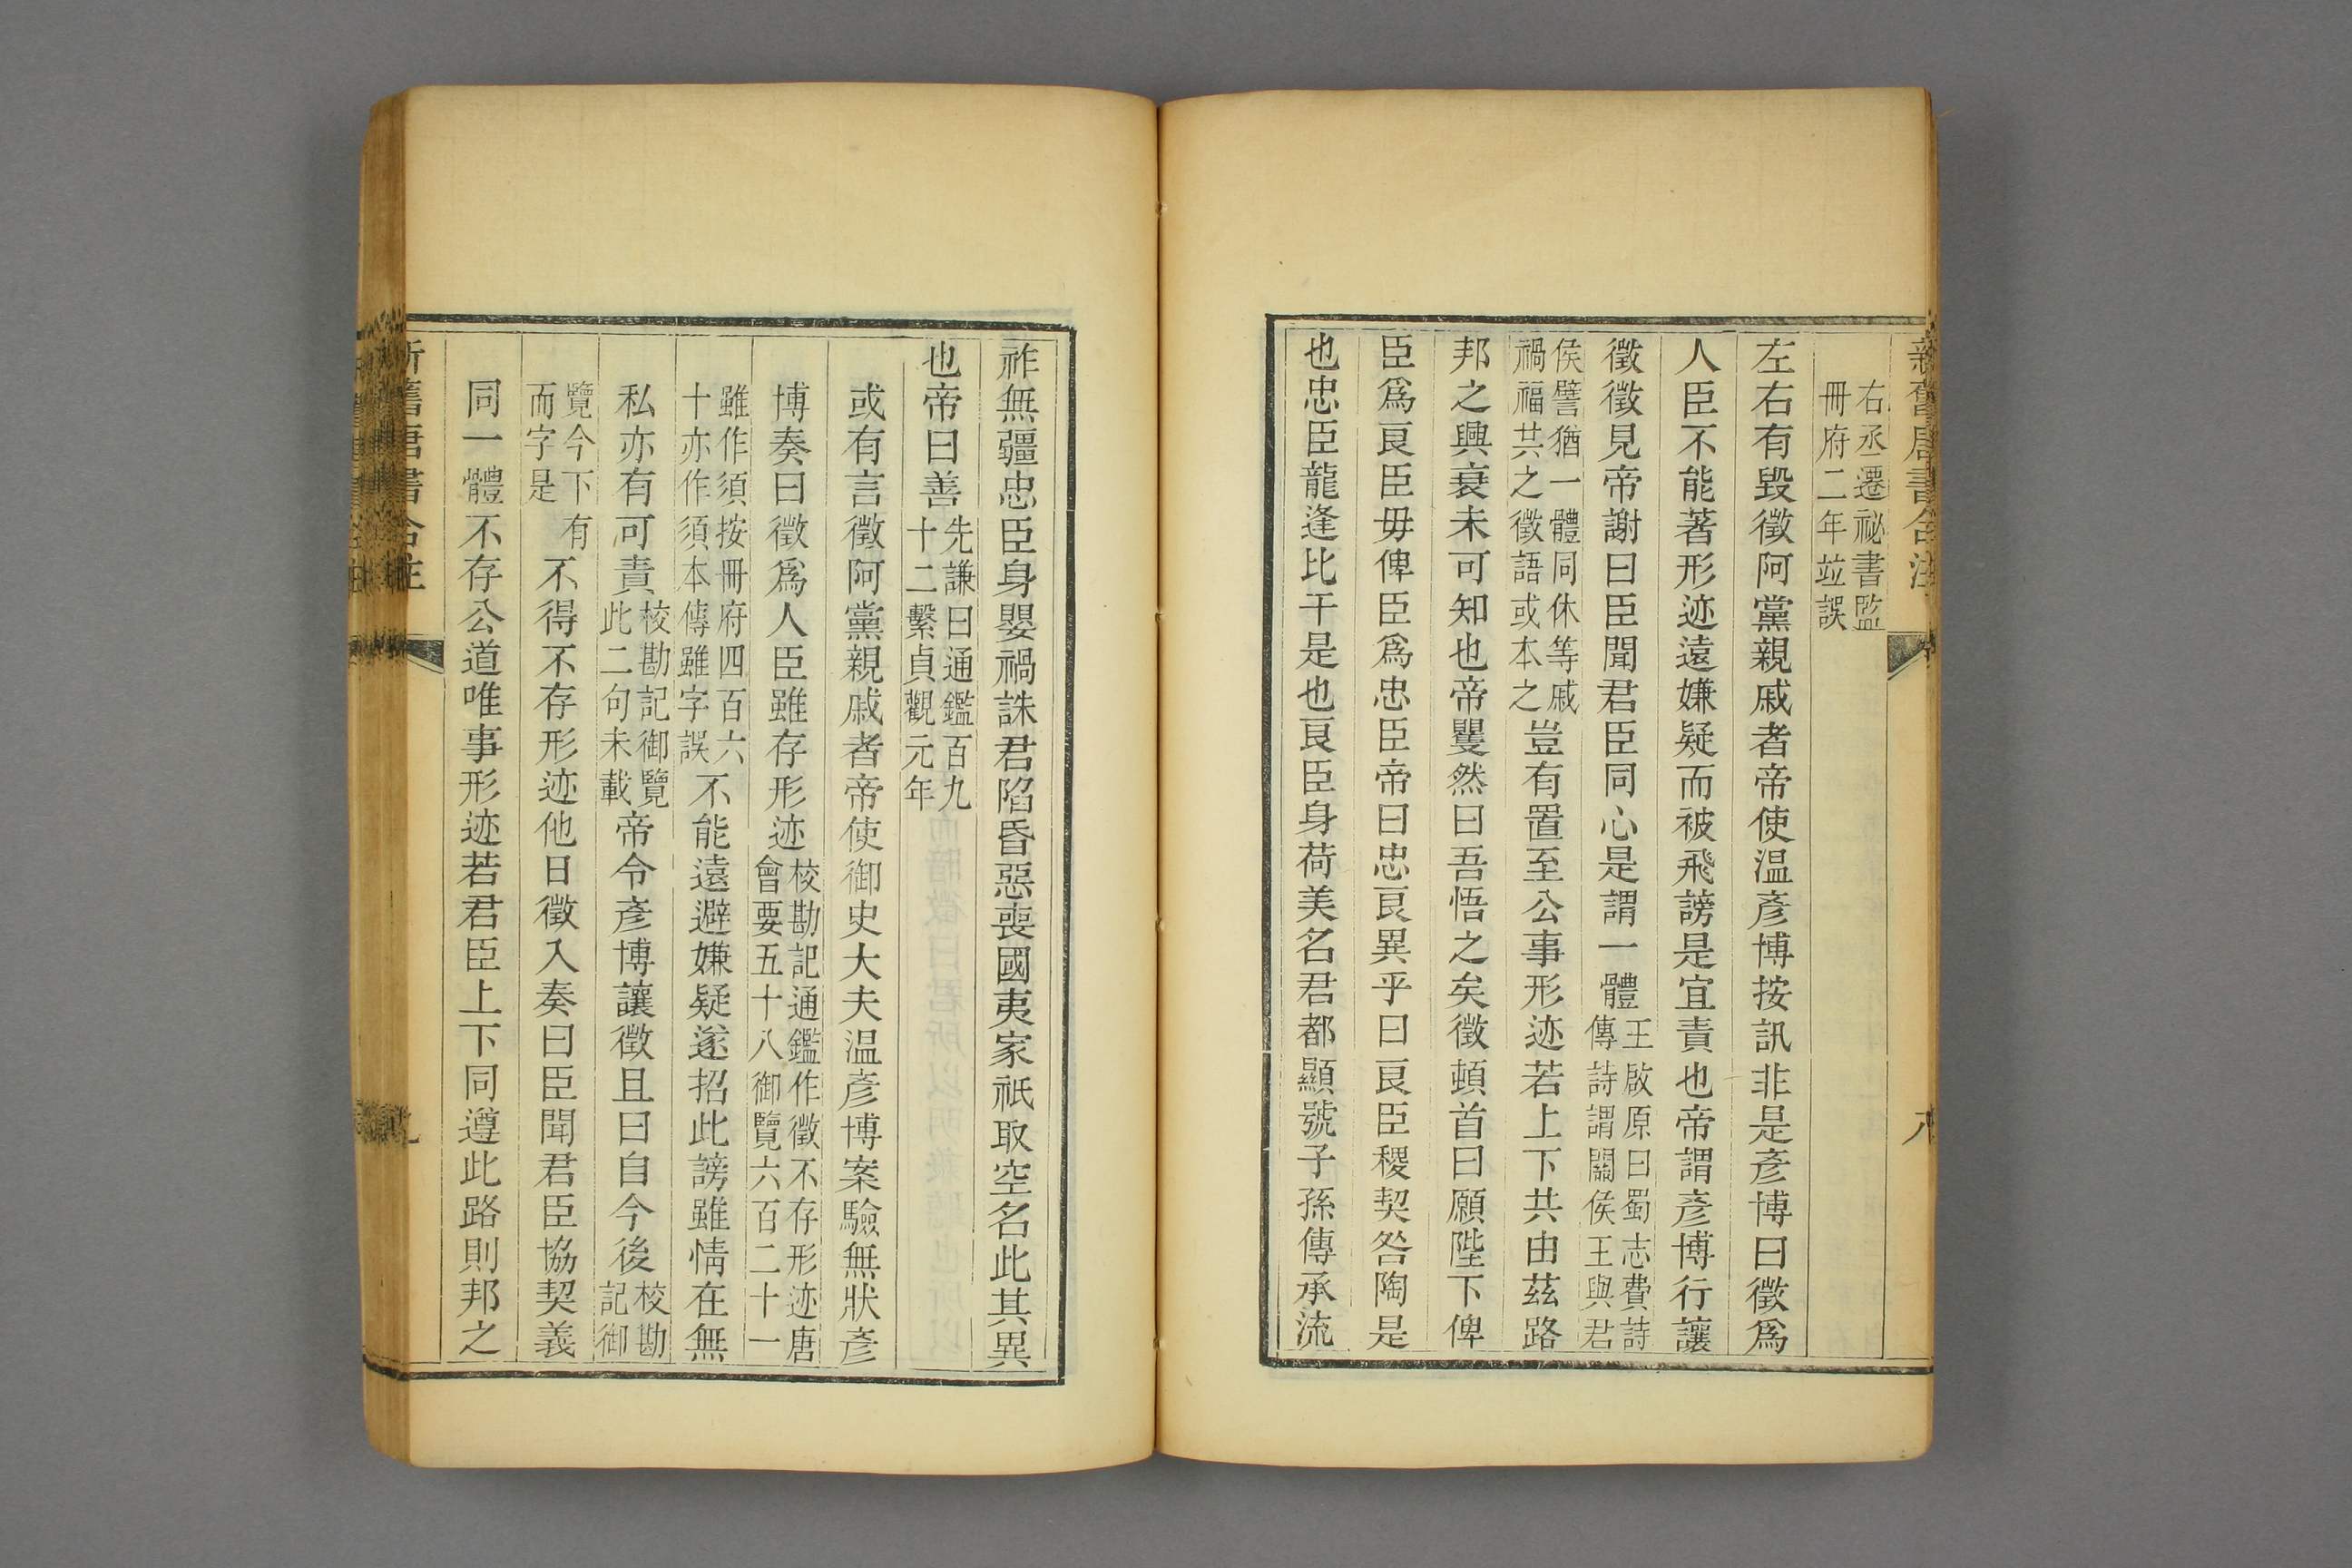 新舊唐書合注
八
右丞遷祕書監
冊府二年竝誤
左右有毀徵阿黨親戚者帝使温彥博按訊非是彥博曰徵爲
人臣不能著形迹遠嫌疑而被飛謗是宜責也帝謂彥博行讓
徵徵見帝謝曰臣聞君臣同心是謂一體王啟原曰蜀志費詩傳詩謂關侯王與君
侯譬猶一體同休等戚禍福共之徵語或本之豈有置至公事形迹若上下共由茲路
邦之興衰未可知也帝矍然曰吾悟之矣徵頓首曰願陛下俾
臣爲良臣毋俾臣爲忠臣帝曰忠良異乎曰良臣稷契咎陶是
也忠臣龍逢比干是也良臣身荷美名君都顯號子孫傳承流
祚無疆忠臣身嬰禍誅君陷昏惡喪國夷家祇取空名此其異
也帝曰善先謙曰通鑑百九十二繫貞觀元年
或有言徵阿黨親戚者帝使御史大夫温彥博案驗無狀彥
博奏曰徵爲人臣雖存形迹校勘記通鑑作徵不存形迹唐會要五十八御覽六百二十一
雖作須按冊府四百六十亦作須本傳雖字誤不能遠避嫌疑遂招此謗雖情在無
私亦有可責校勘記御覽此二句未載帝令彥博讓徵且曰自今後校勘記御
覽今下有而字是不得不存形迹他日徵入奏曰臣聞君臣協契義
同一體不存公道唯事形迹若君臣上下同遵此路則邦之
新舊唐書合注
九